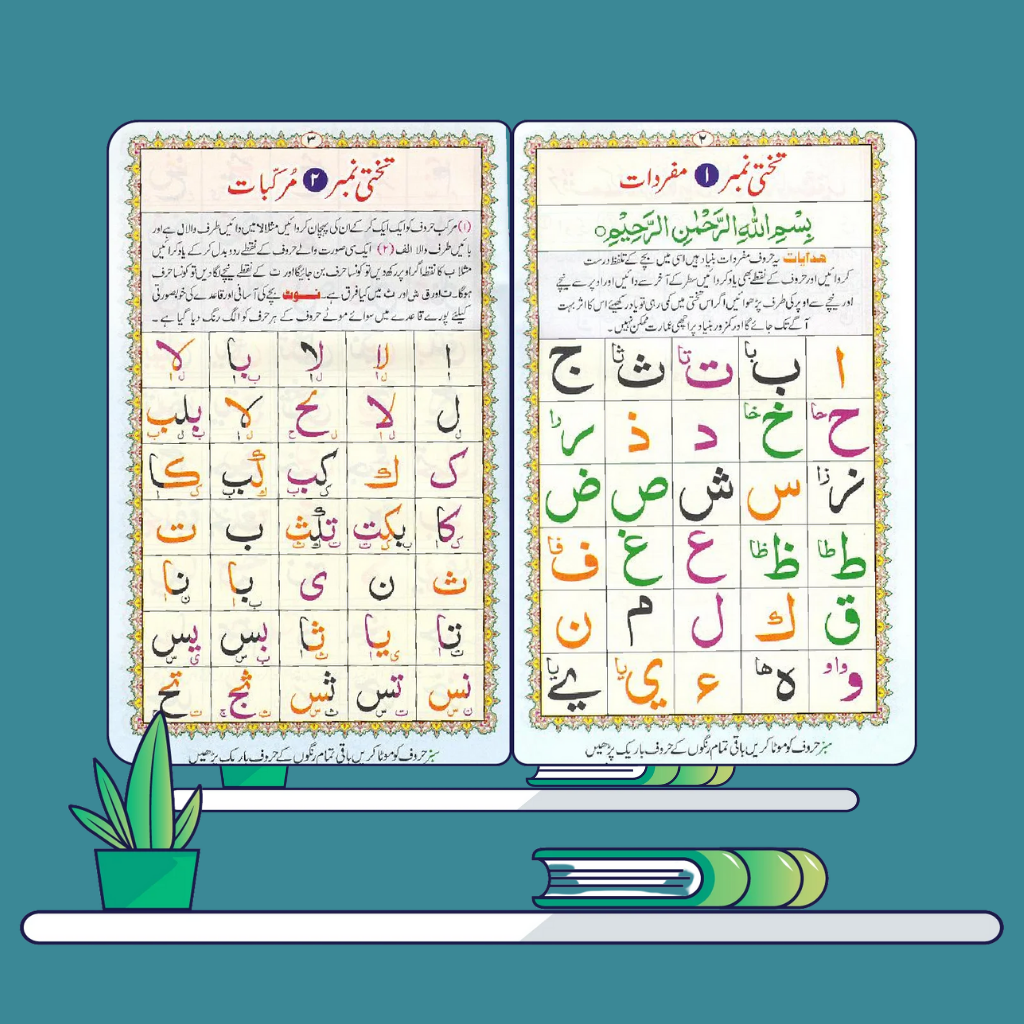 ۲
تختی نمبر ۱ مفردات
بِسْمِ اللهِ الرَّحْمٰنِ الرَّحِيْمِ
ھدایات یہ حروف مفردات بنیاد ہیں اسی میں بچے کے تلفظ درست
کروائیں اور حروف کے نقطے بھی یاد کروائیں سطر کے آخر سے دائیں اور اوپر سے نیچے
اور نیچے سے اوپر کی طرف پڑھوائیں اگر اس تختی میں کمی رہی تو یاد رکھیئے اس کا اثر بہت
آگے تک جائے گا اور کمزور بنیاد پر اچھی عمارت ممکن نہیں۔
ا ب با ت تا ث ثا ج
ح حا خ خا د ذ ر را
ز زا س ش ص ض
ط طا ظ ظا ع غ ف فا
ق ك ل م ن
و واو ہ ھا ء ي یا ے یا
سبز حروف کو موٹا کریں باقی تمام رنگوں کے حروف باریک پڑھیں
۳
تختی نمبر ۲ مُرکّبات
(۱) مرکب حروف کو ایک ایک کر کے ان کی پہچان کروائیں مثلا لا میں دائیں طرف والا ل ہے اور
بائیں طرف والا الف (۲) ایک سی صورت والے حروف کے نقطے ردو بدل کر کے یاد کرائیں
مثلا ب کا نقطہ اگر اوپر رکھ دیں تو کونسا حرف بن جائے گا اور ت کے نقطے نیچے لگا دیں تو کونسا حرف
ہوگا۔ ن اور ق ش اور ث میں کیا فرق ہے۔ نوٹ بچے کی آسانی اور قاعدے کی خوبصورتی
کیلئے پورے قاعدے میں سوائے موٹے حروف کے ہر حرف کو الگ رنگ دیا گیا ہے۔
ا لا لا با لا
ل لا لح لا بلب
ک ك كب كب كا
كا بكت تلث ب ت
ث ن ی با نا
تا یا ثا بس یس
نس تس ثس ثج تح
سبز حروف کو موٹا کریں باقی تمام رنگوں کے حروف باریک پڑھیں